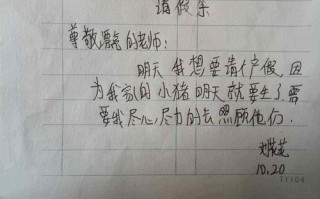 请假条
尊敬漂亮的老师：
明天我想要请个产假，因
为我家的小猪明天就要生了，需
要我尽心，尽力的去照顾他们．
10.20